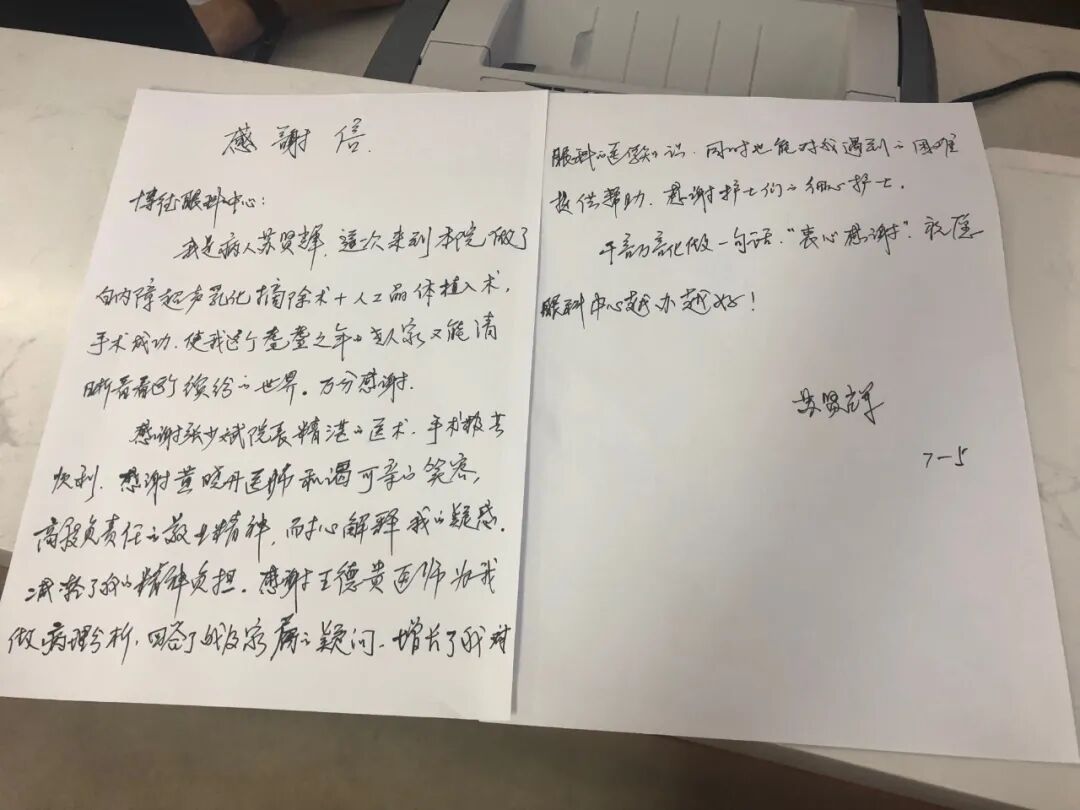 感謝信.
博征眼科中心:
我是病人苏贤辉,這次来到本院做了
白内障超声乳化摘除术+人工晶体植入术,
手术成功.使我这个耄耋之年的老人家又能清
晰看看这个缤纷的世界。万分感谢.
感谢张少斌院长精湛的医术.手术极其
顺利.感谢黄晓丹医师和谒可亲的笑容,
高度负责任的敬业精神,耐心解释我的疑惑.
减轻了我的精神负担.感谢王德贵医师为我
做病理分析,回答了我及家属的疑问.增长了我对
眼科的医学知识.同时也能对我遇到的困难
提供帮助.感谢护士们的细心护士.
千言万言化做一句话."衷心感谢".祝
眼科中心越办越好!
苏贤辉
7-5